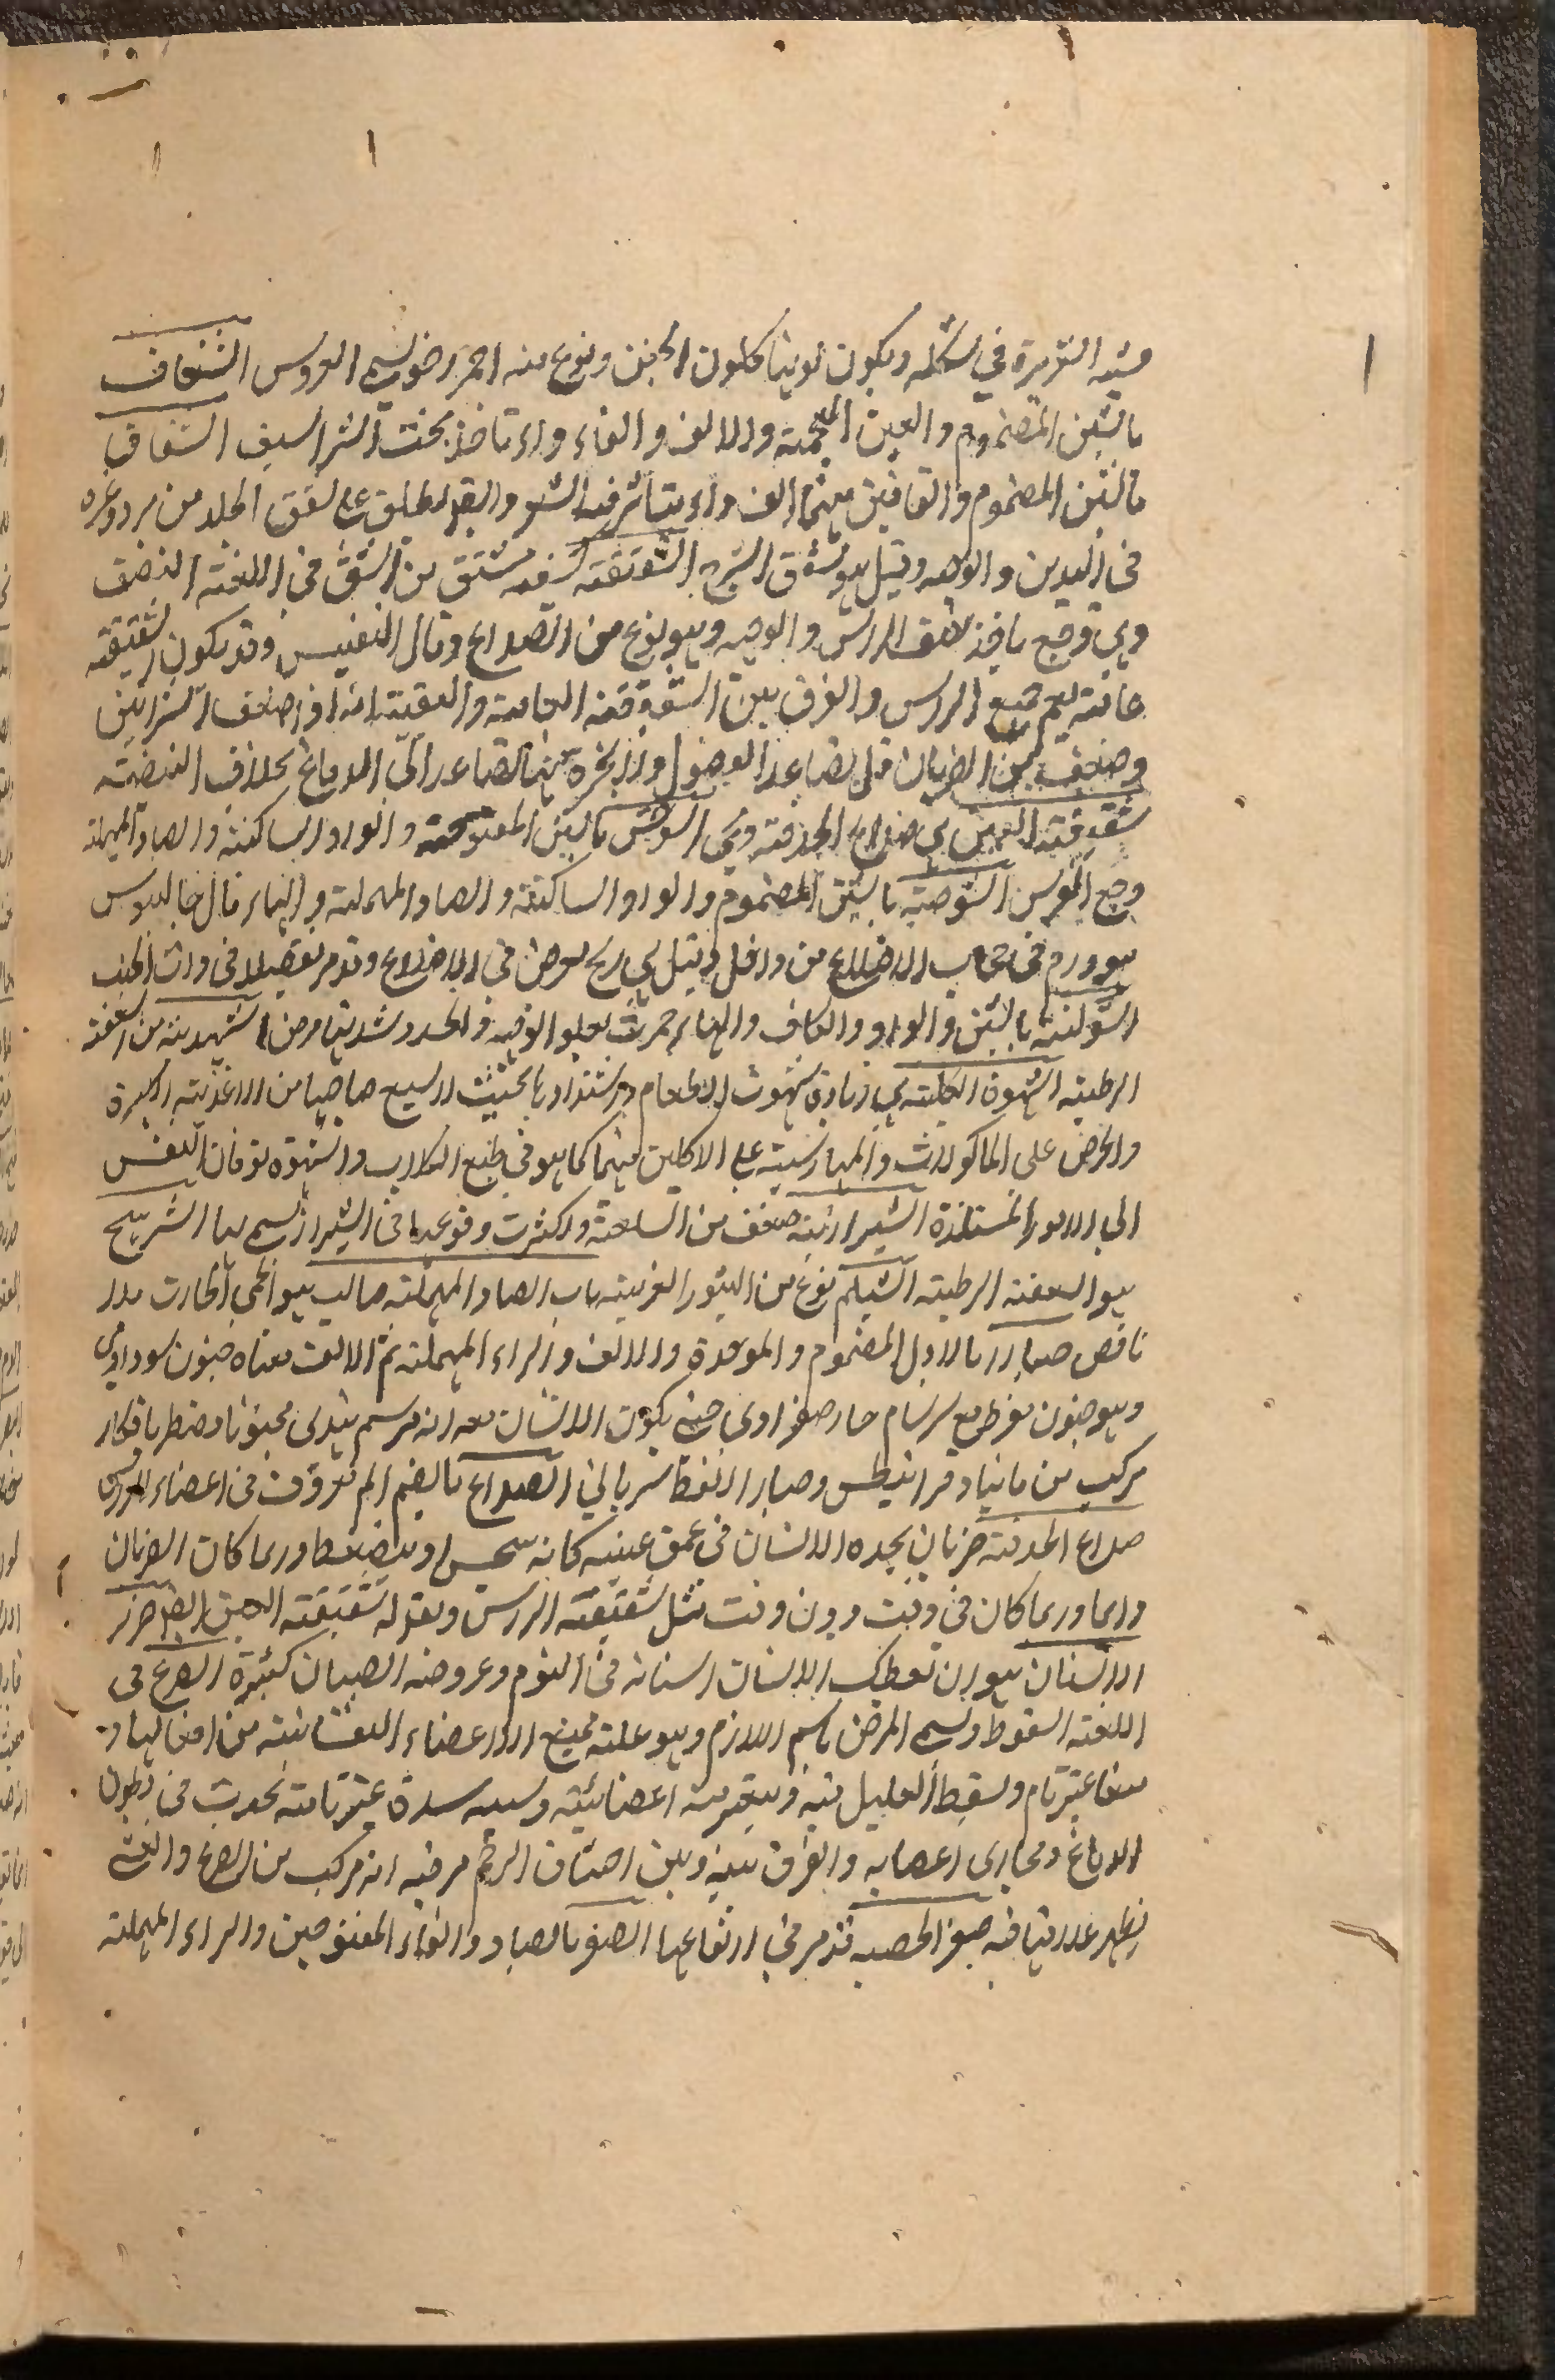 يشبه الشعيرة في شكله ويكون لونها كلون الجبن ونوع منه احمر رخو يسمى العروس الشغاف
بالشين المضموم والغين المعجمة والالف والفاء داء تاخذ تحت الشراسيف الشقاق
بالشين المضموم والقافين بينهما الف داء يتأثر فيه الشعر وايضا يطلق على تشقق الجلد من برد وغيره
في اليدين والوجه وقيل هو تشقق الشرج الشقيقة مشتق من الشق في اللغة النصف
وهي وجع ياخذ شق الراس والوجه وهو نوع من الصداع وقال النفيس وقد يكون الشقيقة
عامة يعم جميع الراس والفرق بين الشقيقة العامة والبيضة انه اذا ضغط الشرايين
وضغف من الضربان قل تصاعد الفضول والابخرة منها الصاعد الى الدماغ بخلاف البيضة
شقيقة العين هي صداع الحدقة الشوص بالشين المفتوحة والواو الساكنة والصاد المهملة
وجع الضرس الشوصة بالشين المضموم والواو الساكنة والصاد المهملة والهاء قال جالينوس
هو ورم في حجاب الاضلاع من داخل وقيل هي ريح تعرض في الاضلاع وقد مر تفصيلا في ذات الجنب
الشوكة بالشين والواو والكاف والهاء حمرة تعلو الوجه والجسد الشهدية من السعفة
الرطبة الشهوة الكلبية هي زيادة شهوة الطعام واشتدادها بحيث لا يشبع صاحبها من الاغذية الكثيرة
والحرص على الماكولات والمهارشة على الاكلين منهما كما هو في طبع الكلاب والشهوة توقان النفس
الى الامور المستلذة الشيرازية صنف من السعفة واكثرت وقوعها في الشيراز يسمى بها الشرينج
هو السعفة الرطبة الشيلم نوع من البثور الغريبة باب الصاد المهملة صالب هو الحمى الحارة بلا
نافض صبارا بالاول المضموم والموحدة والالف والراء المهملة ثم الالف معناه جنون سوداوي
وهو جنون مفرط مع سرسام حار صفراوي حتى يكون الانسان مع انه مبرسم يهذي مجنونا مضطربا فكانه
مركب من مانيا وقرانيطس وصبارا لفظ سرياني الصداع بالضم الم معروف في اعضاء الراس
صداع الحدقة ضربان يجده الانسان في عمق عينيه كانه ينخس او ينضغط وربما كان الضربان
دائما وربما كان في وقت دون وقت مثل شقيقة الراس ويقوله شقيقة العين ايضا صرير
الاسنان هو ان تصطك الانسان اسنانه في النوم وعروضه الصبيان كثيرة الصرع في
اللغة السقوط ويسمى المرض باسم اللازم وهو علة تمنع الاعضاء النفسانية من افعالها
منعا غير تام ويسقط العليل منه ويتغير منه اعضائه وسببه سدة غير تامة تحدث في بطون
الدماغ ومجاري اعصابه والفرق بينه وبين اختناق الرحم مر فيه انه مركب من الصرع والغشي
يظهر علاماتها فيه صفر الحصبة قد مر في ارتفاعها الصفر بالصاد والفاء المفتوحين والراء المهملة